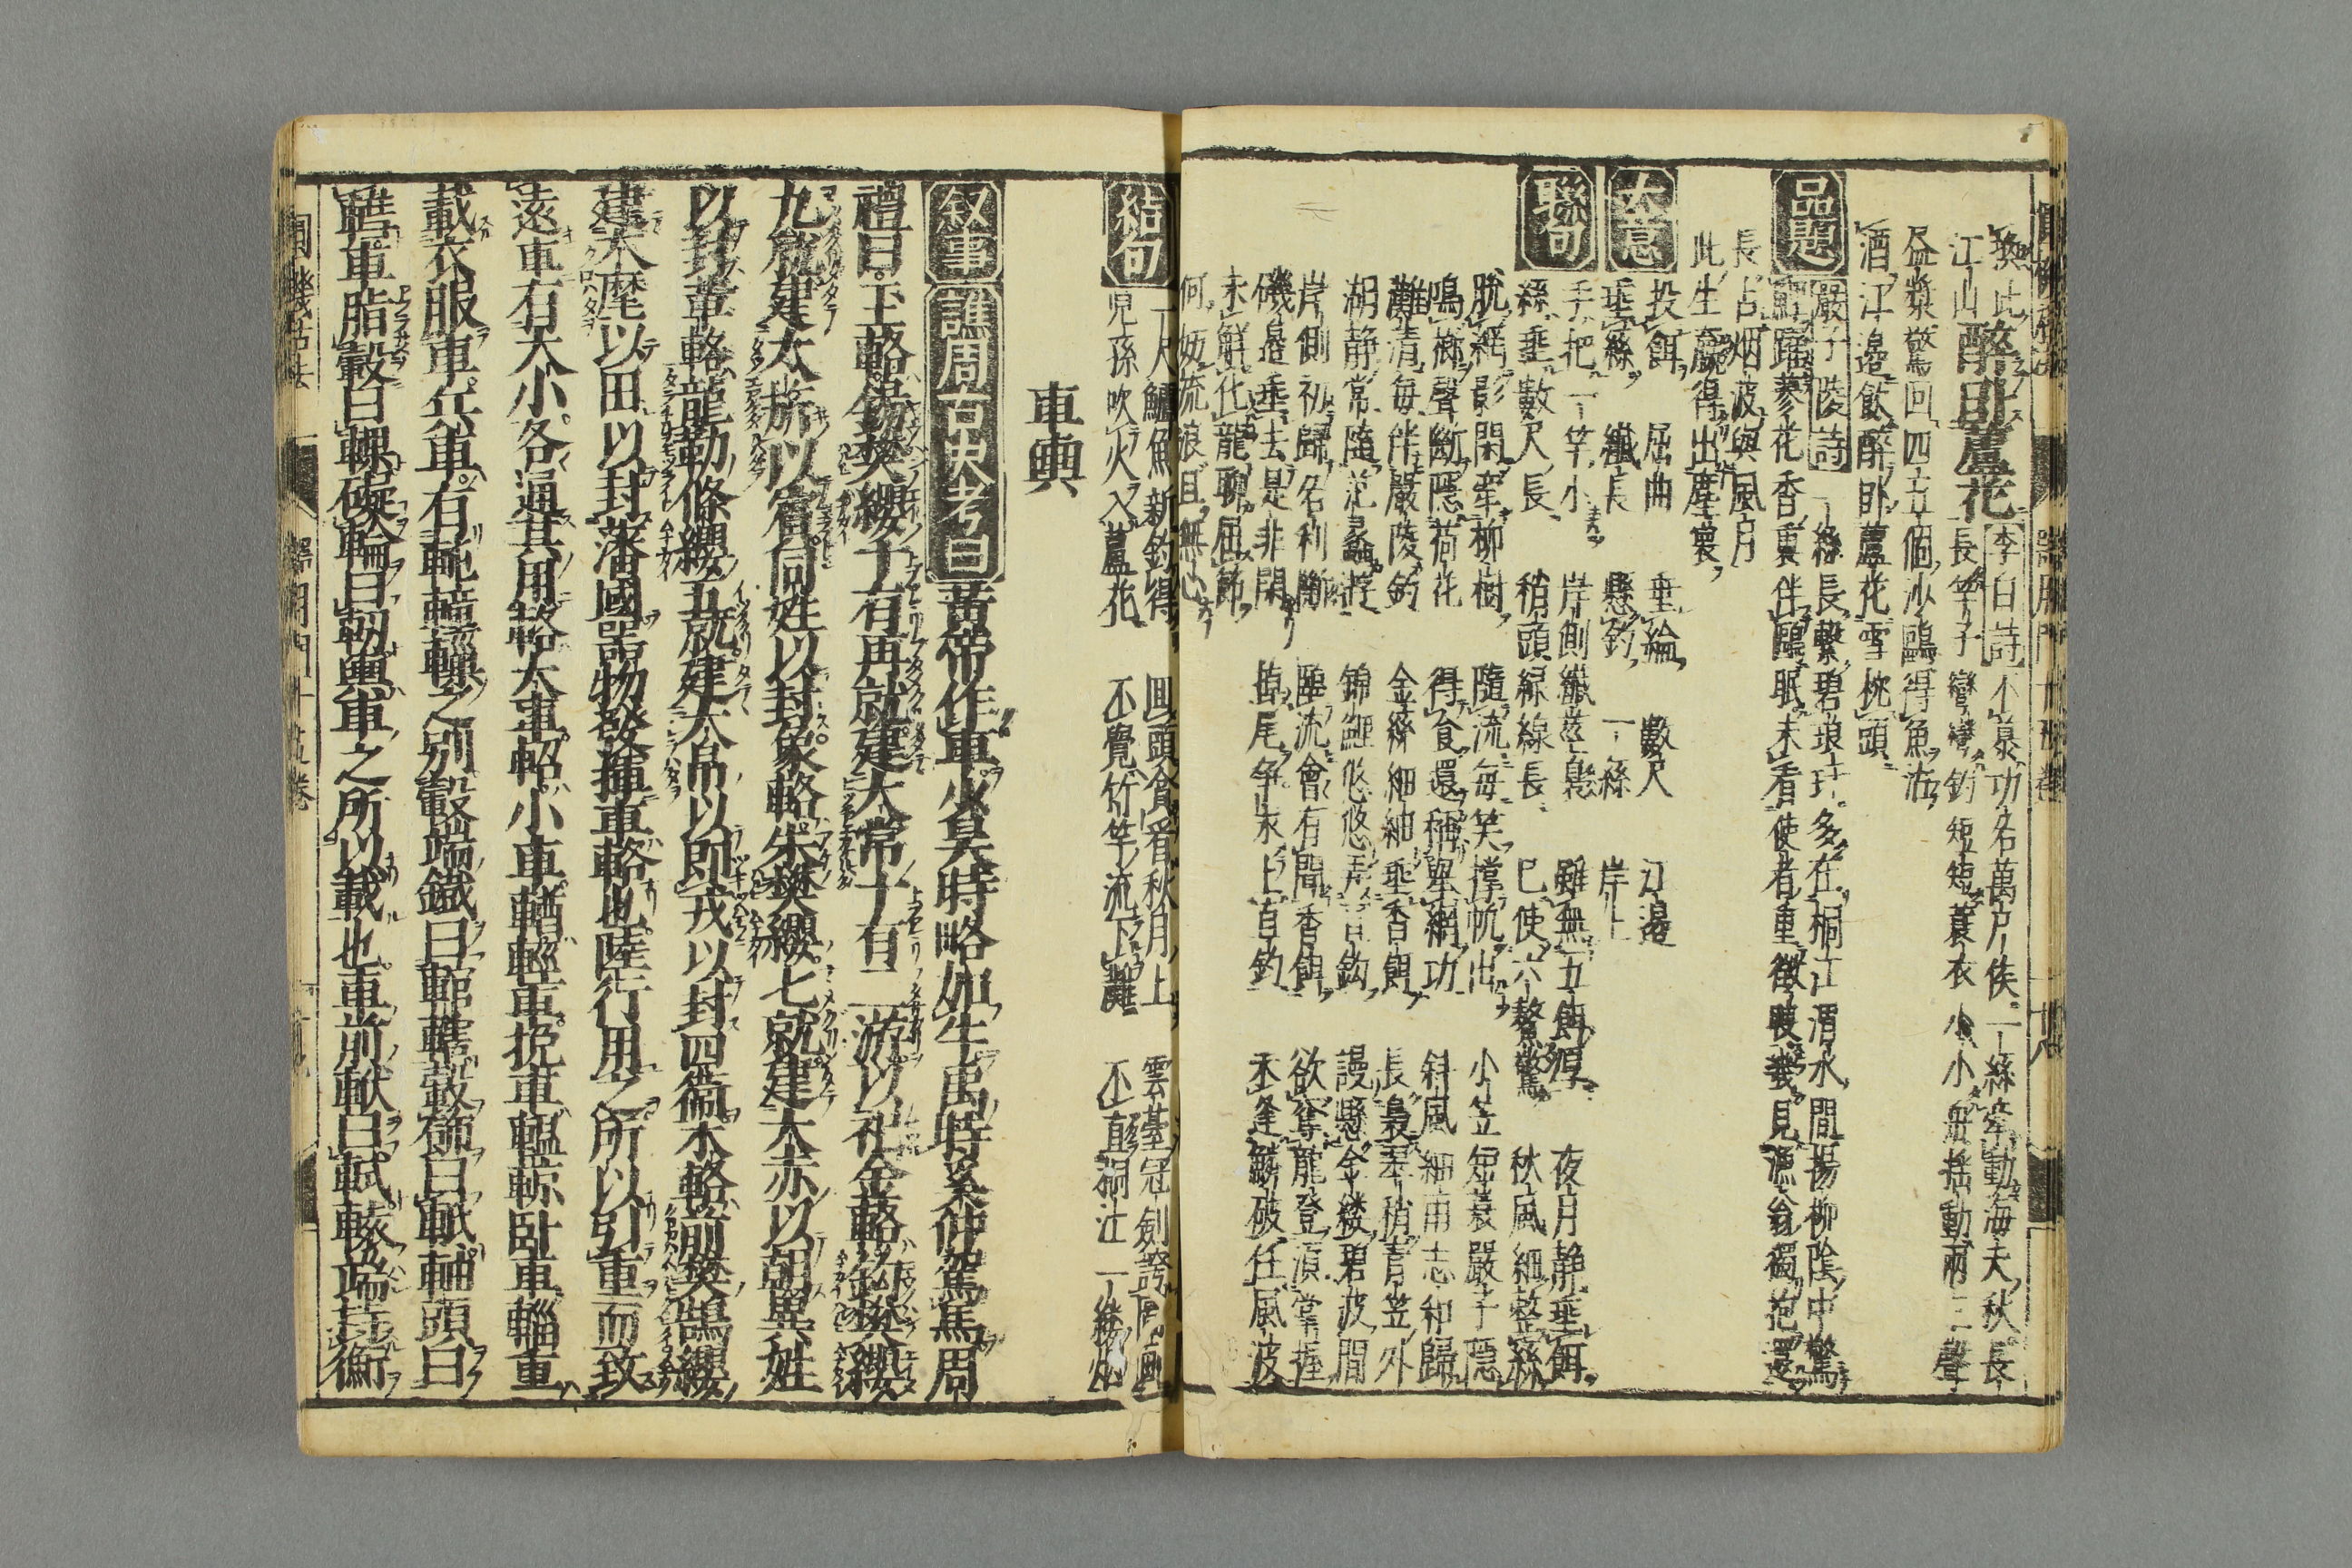 換此
江山 醉臥蘆花 李白詩 不羨功名萬戶侯一絲牽動海天秋長
長竿子彎彎釣短短蓑衣小小舡搖動兩三聲
益槳驚回四五個沙鷗得魚沽
酒江邊飲醉臥蘆花雪枕頭
品題
嚴子陵詩 一絲長繫碧琅玕多在桐江渭水間楊柳陰中驚
鯉躍蓼花香裏伴鷗眠未看使者重徵聘幾見漁翁獨抱還
長占烟波與風月
此生贏得出塵裏
大意
投餌 屈曲 垂綸 數尺 江邊
垂絲 纖長 懸釣 一絲 岸上
聯句
手把一竿小 岸側纖慈懸 雖無五餌煙 夜月靜垂餌
絲垂數尺長 稍頭綠線長 已使六鰲驚 秋風細整絲
脫網影閑牽柳樹 隨流每笑撐帆出 小笠短蓑嚴子隱
鳴榔聲斷隱荷花 得食還稱舉網功 斜風細雨志和歸
灘清每伴嚴陵釣 金絲細紬垂香餌 長裊翠稍青笠外
湖靜常隨范蠡遊 錦鯉悠悠 鈎 謾懸金縷碧波間
岸側初歸名利斷 臨流會有聞香餌 欲奪龍登須掌握
磯邊垂去是非閑 掉尾爭來上直鈎 不逢鱗破任風波
未鮮化龍聊屈節
何妨流浪且無心
結句
一尺鱸魚新釣得 回頭貪看秋月上 雲臺冠劍誇
兒孫吹火入蘆花 不覺竹竿流下灘 不直桐江一縷烟
車輿
叙事 譙周古史考曰 黃帝作車少昊時略加牛禹時奚仲駕馬周
禮曰玉輅錫樊纓十有再就建大常十有二斿以祀金輅鈎樊纓
九就建大旂以賓同姓以封象輅朱樊纓七就建大赤以朝異姓
以封革輅龍勒條纓五就建大帛以即戎以封四衛木輅前樊鵠纓
建大麾以田以封藩國器物發揮車輅也陸行用之所以引重而致
遠車有大小各適其用輅大車軺小車輶輕車挽車轀輬臥車輜重
載衣服車兵車有軘䡴轈之別轂端鐵曰輨轄轂飾曰軝軸頭曰
䡺車脂轂曰輠礙輪曰軔輿車之所以載也車前軾曰軾輆端持衡
圓機活法 器用門十五卷